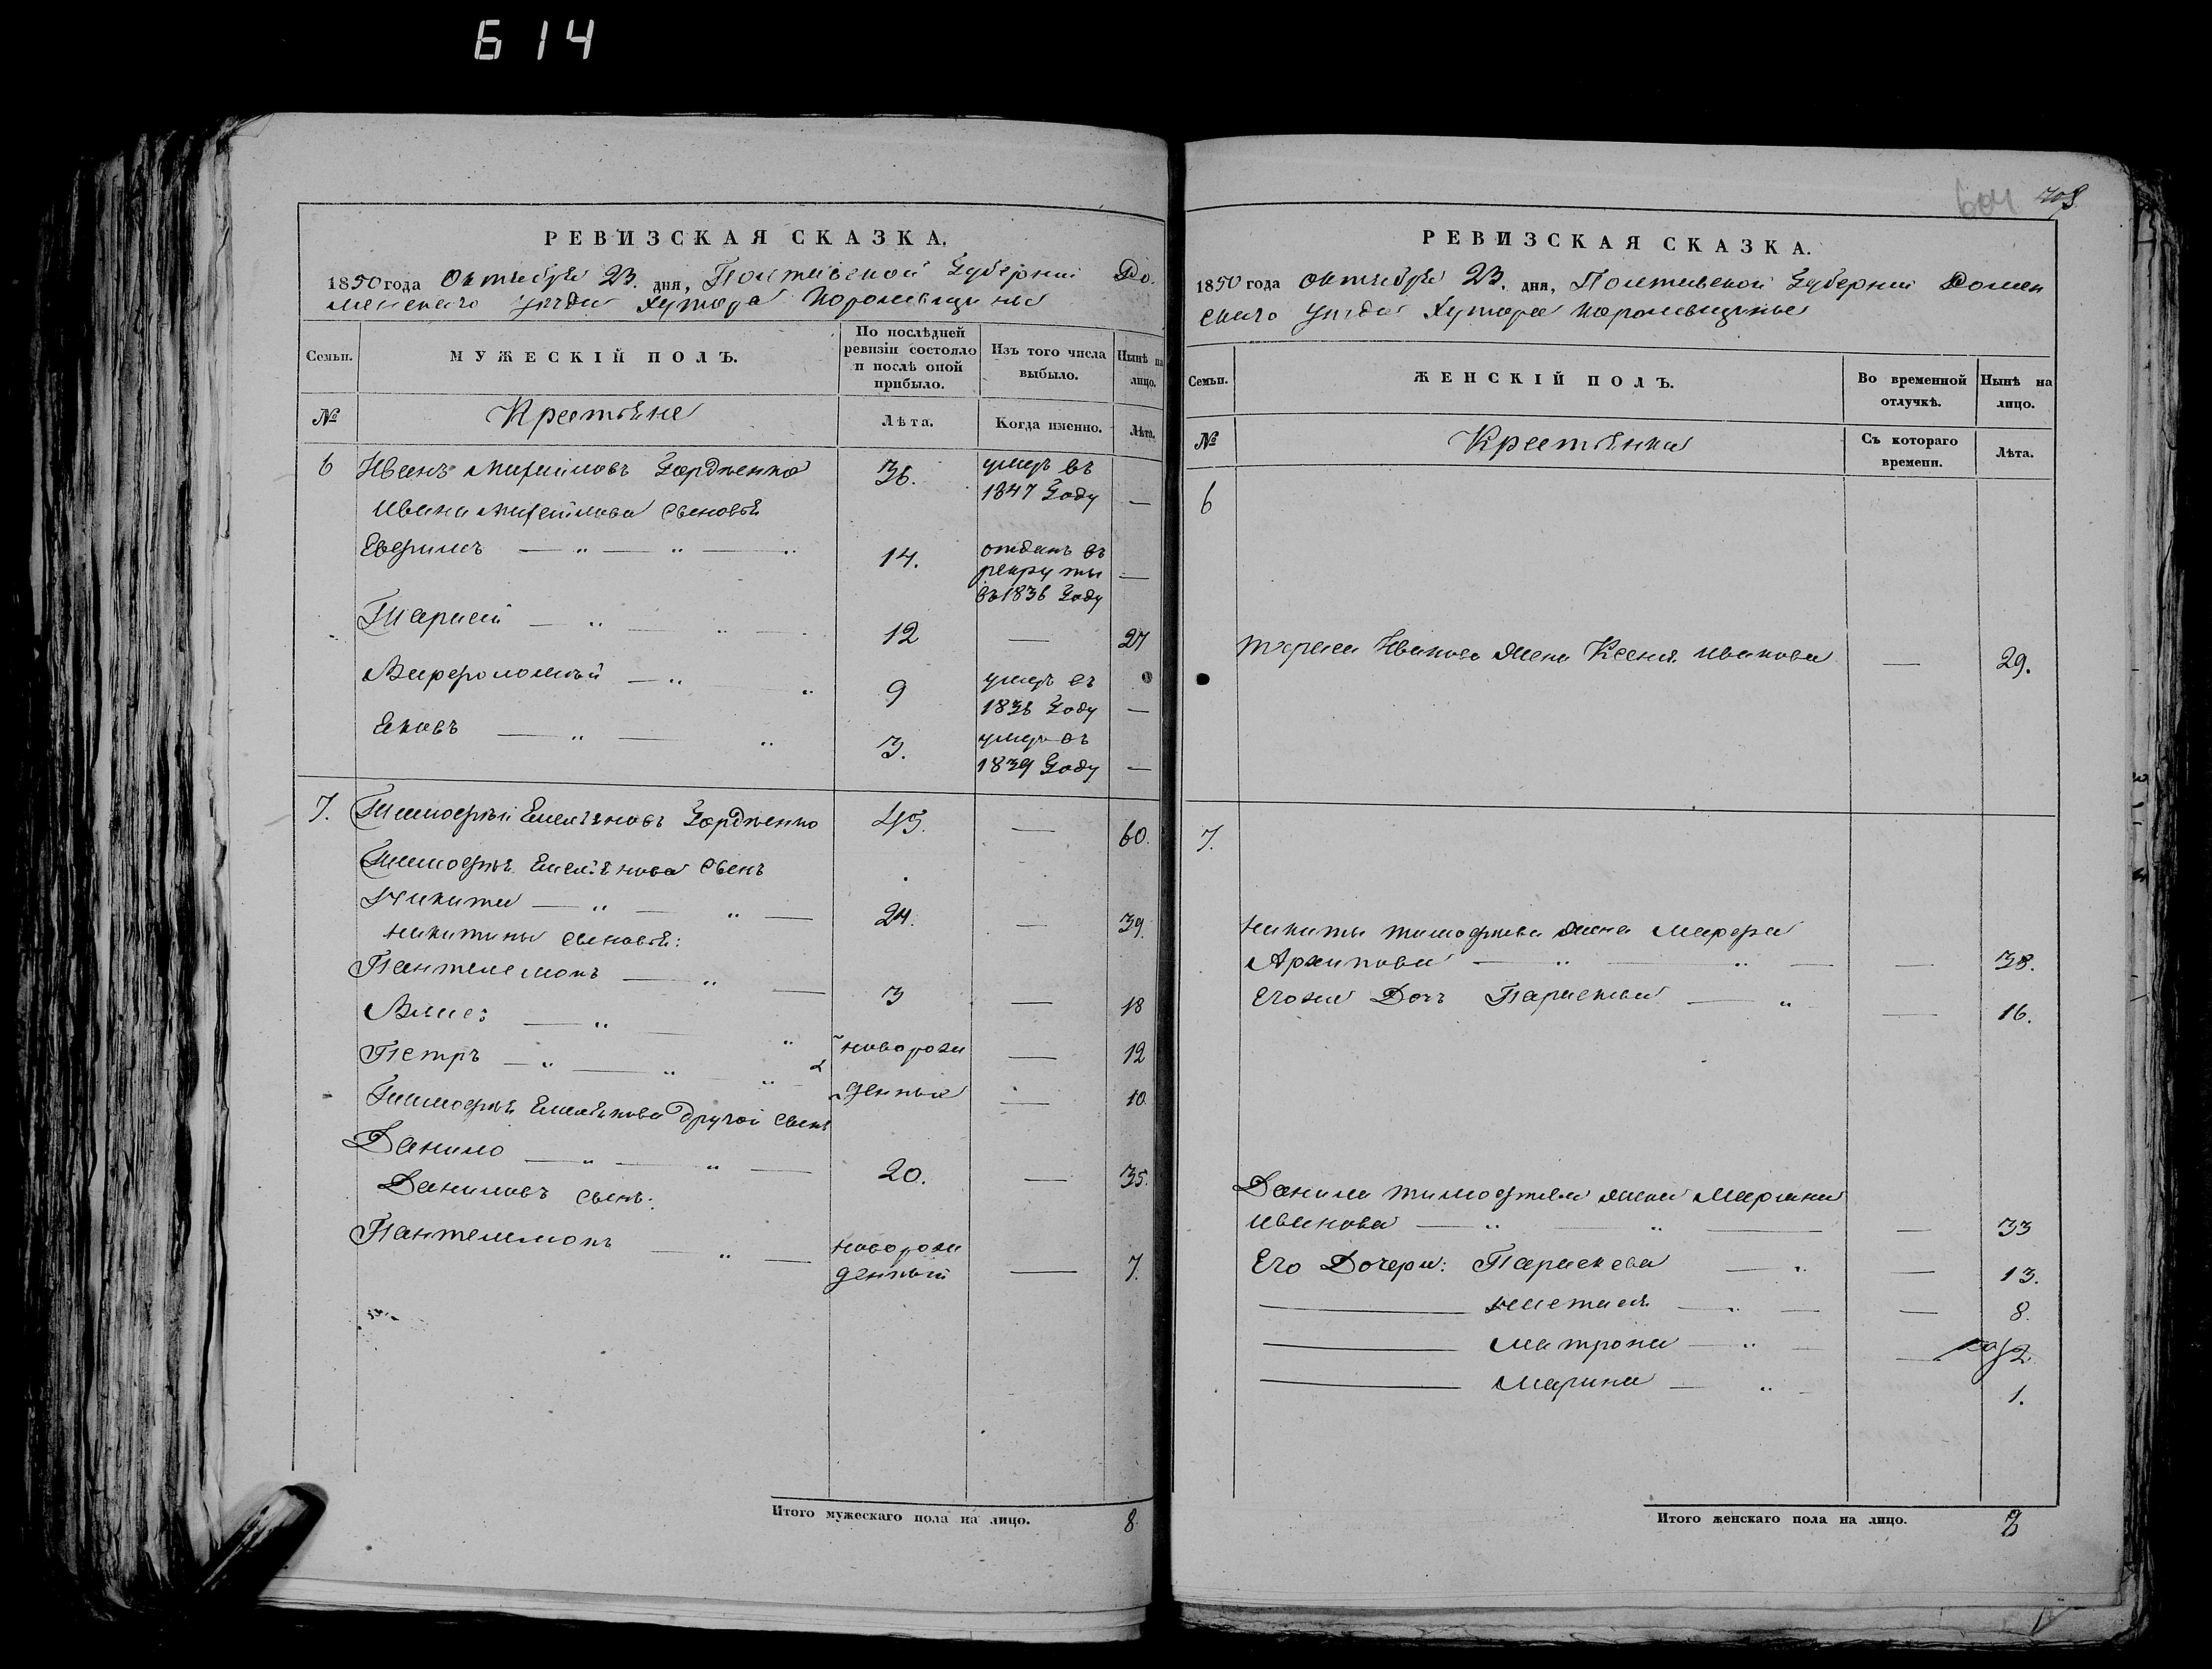 614
РЕВИЗСКАЯ СКАЗКА.
1850 года Октября 23. дня, Полтавской Губернии Ро-
менскаго уезда Хутора
Семьи.
МУЖЕСКІЙ ПОЛЪ.
По послѣдней ревизіи состояло и послѣ оной прибыло.
Изъ того числа выбыло.
Нынѣ на лицо.
№
Крестьяне
Лѣта.
Когда именно.
Лѣта.
6 Иванъ Михайловъ Гордѣенко 36. умеръ въ
1847 Году —
Ивана Михайлова сыновья
Евфимъ — " — " — " 14. отданъ въ
рекруты —
въ 1836 Году
Тарасій — " — " — 12 — 27
Варфоломѣй — " " 9 умеръ въ
1836 Году —
Яковъ — " — " 3. умеръ въ
1839 Году —
7. Тимофѣй Емельяновъ Гордѣенко 45. — 60.
Тимофѣя Емельянова сынъ
Никита — " — " — 24. — 39.
Никитины сыновья:
Пантелемонъ — " — 3 — 18
Власъ — " — " новорож — 12
Петръ — " — " — " денныя — 10.
Тимофѣя Емельянова другой сынъ
Данило — " — " — 20. — 35.
Даниловъ сынъ:
Пантелемонъ — " — новорож
денный — 7.
Итого мужескаго пола на лицо. 8.
604 708
РЕВИЗСКАЯ СКАЗКА.
1850 года Октября 23. дня, Полтавской Губернии Ромен
скаго уезда Хутора
Семьи.
ЖЕНСКІЙ ПОЛЪ.
Во временной отлучкѣ.
Нынѣ на лицо.
№
Крестьянки
Съ котораго времени.
Лѣта.
6
Тараса Иванова жена Ксенія Иванова — 29.
7.
Никиты Тимофѣева жена Марфа
Архипова — " — " — — 38.
Егожъ Дочь Параскева — " — 16.
Данила Тимофѣева жена Мариана
Иванова — " — " — — 33
Его Дочери: Параскева — " — 13.
— Анастасія — " — — 8.
— Матрона — " — — 2.
— Марина — " — 1.
Итого женскаго пола на лицо.